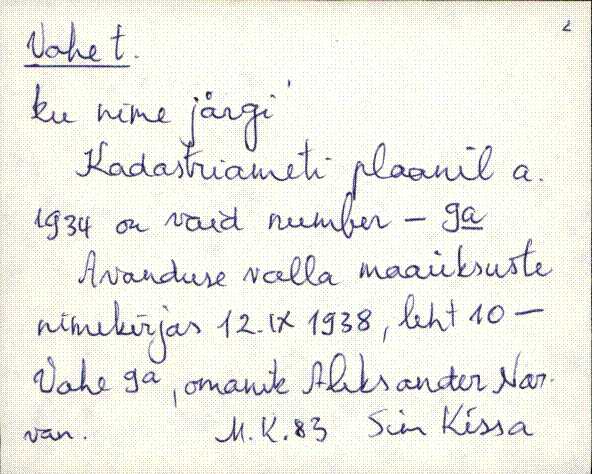 2
Vahe t.
ku nime järgi
Kadastriameti plaanil a.
1934 on vaid number – 9a
Avanduse valla maaüksuste
nimekirjas 12.IX 1938, leht 10 –
Vahe 9a, omanik Aleksander Nar-
van. M.K.83 Siim Kissa